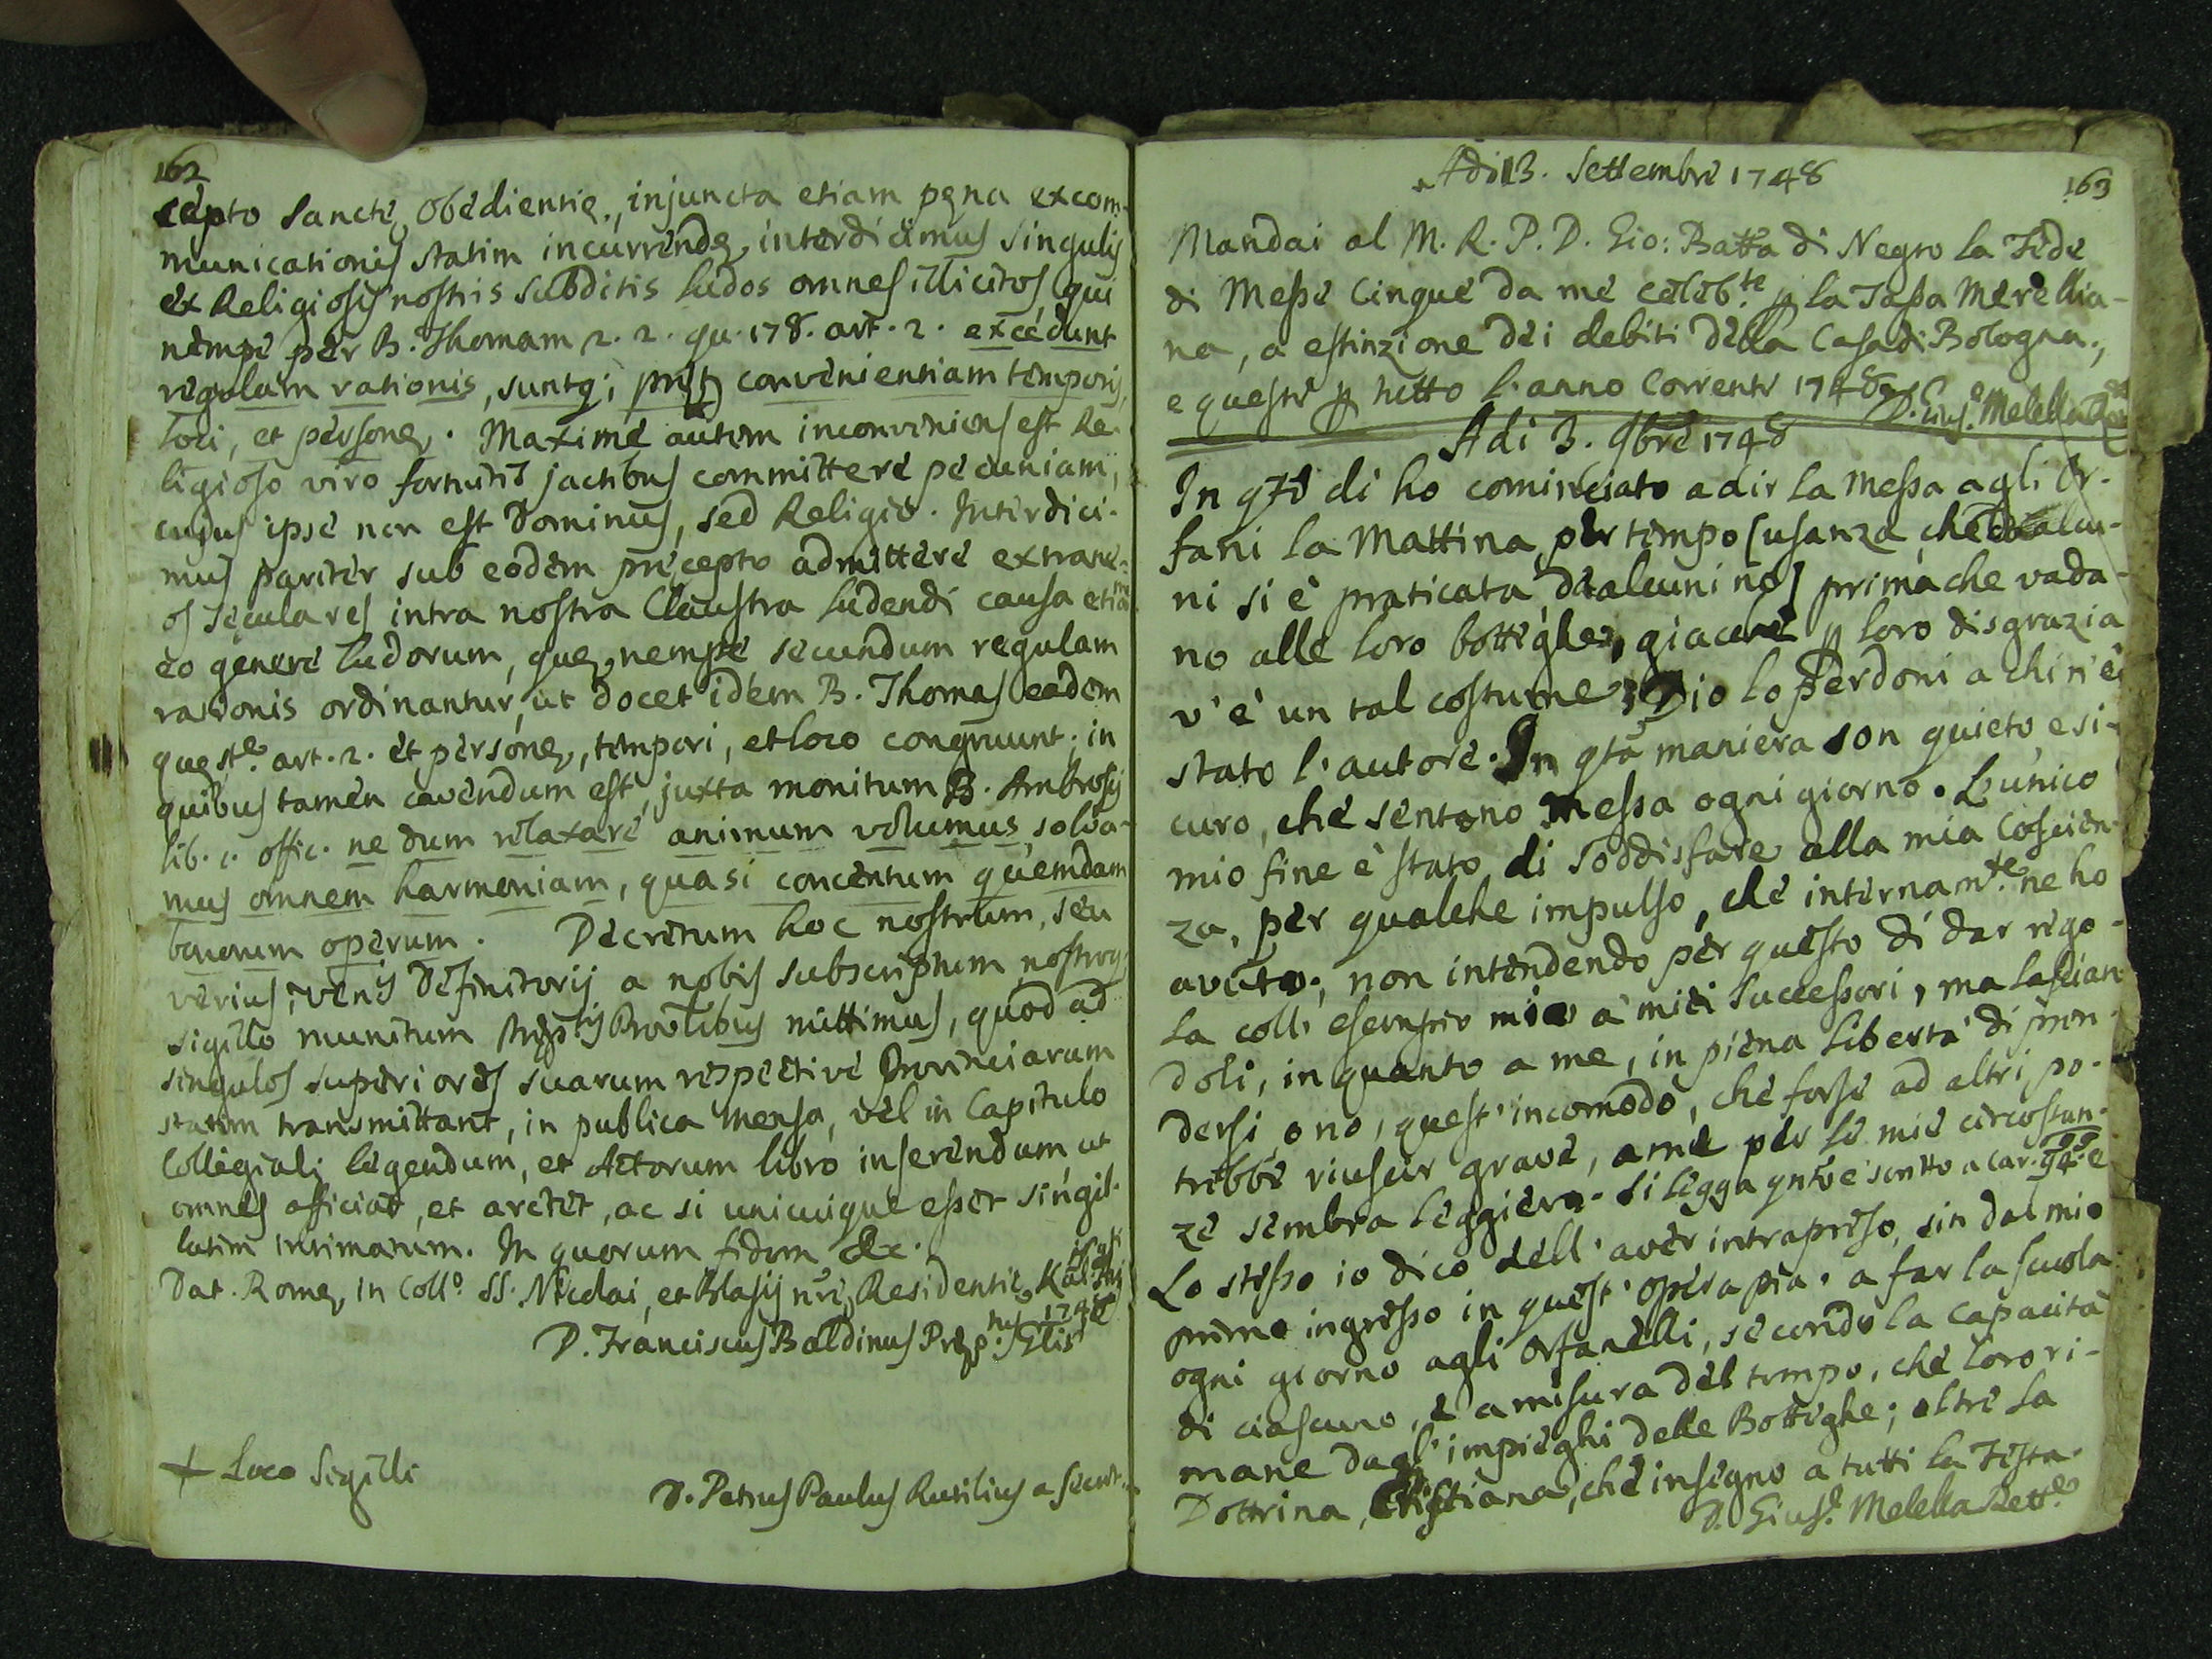 162
cepto Sanctę Obedientię, injuncta etiam pęna excom-
municationis statim incurrendę, interdicimus singulis
ex Religiosis nostris subditis ludos omnes illicitos, qui
nempe per B. Thomam 2. 2. qu. 178. art. 2. excedunt
regulam rationis, suntq; convenientiam temporis,
loci, et personę. Maxime autem inconveniens est Re-
ligioso viro fortuitis jactibus committere pecuniam,
cujus ipse non est Dominus, sed Religio. Interdici-
mus pariter sub eodem pręcepto admittere extrane-
os sęculares intra nostra Claustra ludendi causa etiam
eo genere ludorum, quę nempe secundum regulam
rationis ordinantur, ut docet idem B. Thomas eadem
quęst.e art. 2. et personę, tempori, et loco congruunt; in
quibus tamen cavendum est, juxta monitum B. Ambrosij
lib. 1. offic. ne dum relaxare animum volumus, solva-
mus omnem harmoniam, quasi concentum quemdam
bonorum operum. Decretum hoc nostrum, seu
verius, Definitorij a nobis subscriptum nostroq;
sigillo munitum mittimus, quod ad
singulos superiores suarum respective Provinciarum
statim transmittant, in publica mensa, vel in Capitulo
Collegiali legendum, et Actorum libro inserendum, ut
omnes afficiat, et arctet, ac si unicuique esset singil-
latim intimatum. In quorum fidem &c.
Dat. Romę, in Coll.o SS. Nicolai, et Blasij nrę Residentię, Kal.
1748
D. Franciscus Baldinus Pręp.tus Glis
+ Loco Sigilli
D. Petrus Paulus Rutilius a Secret.
163
Adi 13. Settembre 1748
Mandai al M. R. P. D. Gio: Batta di Negro la Fede
di Messe Cinque da me celeb.te p la Tassa Merellia-
na, a estinzione dei debiti della Casa di Bologna,
e queste p tutto l'anno corrente 1748. D. Gius.e Melella
Adi 3. 9bre 1748
In qto di ho cominciato a dir la Messa agli Or-
fani la Mattina per tempo (usanza, che da alcu-
ni si è praticata, da alcuni no) prima che vada-
no alle loro botteghe, giacchè p loro disgrazia
v'è un tal costume; Dio lo perdoni a chi n'è
stato l'autore. In qta maniera son quieto, e si-
curo, che sentono Messa ogni giorno. L'unico
mio fine è stato di soddisfare alla mia Coscien-
za, per qualche impulso, che internam.te ne ho
avuto; non intendendo per questo di dar rego-
la coll' esempio mio a' miei Successori, ma lascian-
doli, in quanto a me, in piena libertà di pren-
dersi, o no, quest' incomodo, che forse ad altri po-
trebbe riuscir grave, a me per le mie circostan-
ze sembra leggiero. Si legga qnto è scritto a car. 94. e
Lo stesso io dico dell' aver intrapreso, sin dal mio
primo ingresso in quest' opera pia, a far la scuola
ogni giorno agli Orfanelli, secondo la capacità
di ciascuno, e a misura del tempo, che loro ri-
mane dagl' impieghi delle Botteghe; oltre la
Dottrina Cristiana, che insegno a tutti la Festa.
D. Gius.e Melella Rett.e